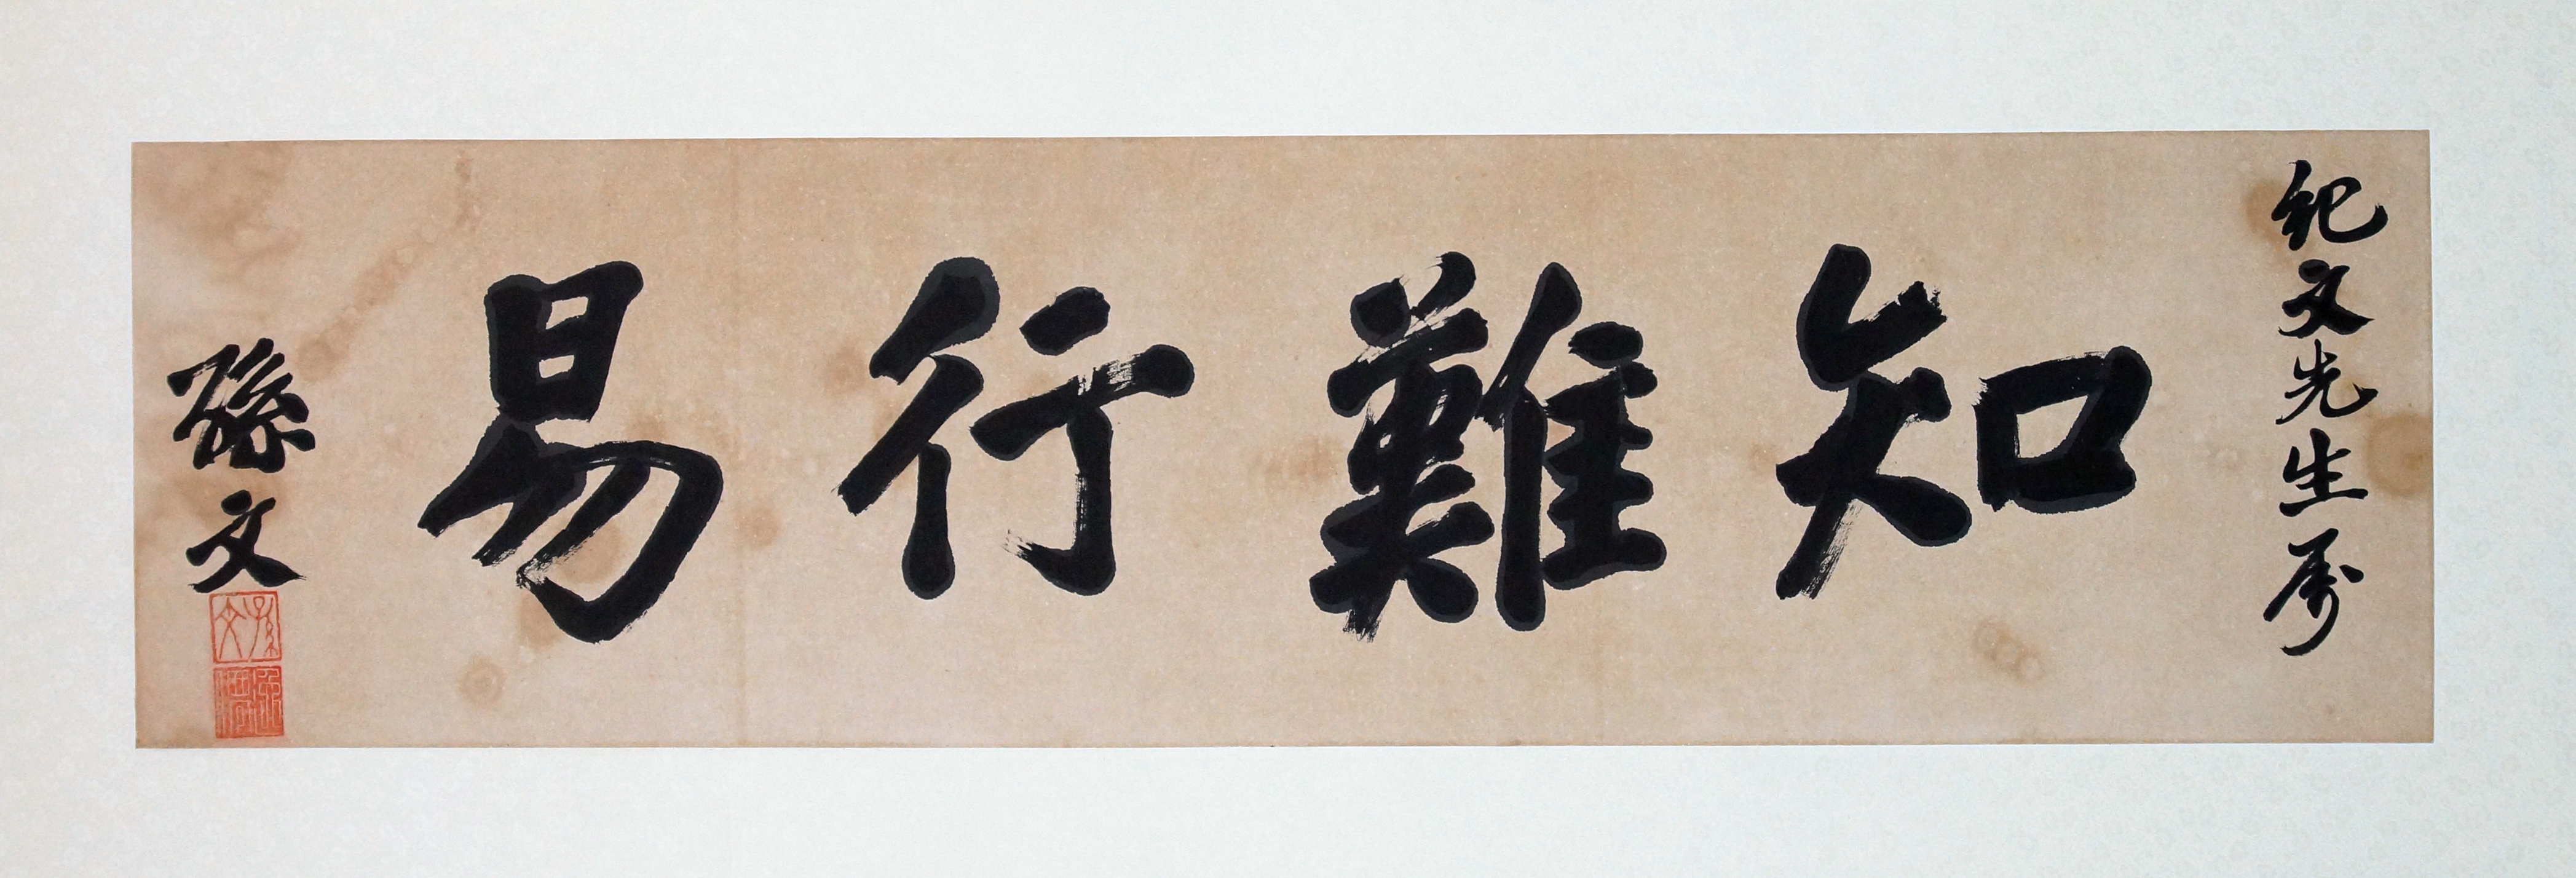 紀文先生屬
知難行易
孫文
孫文